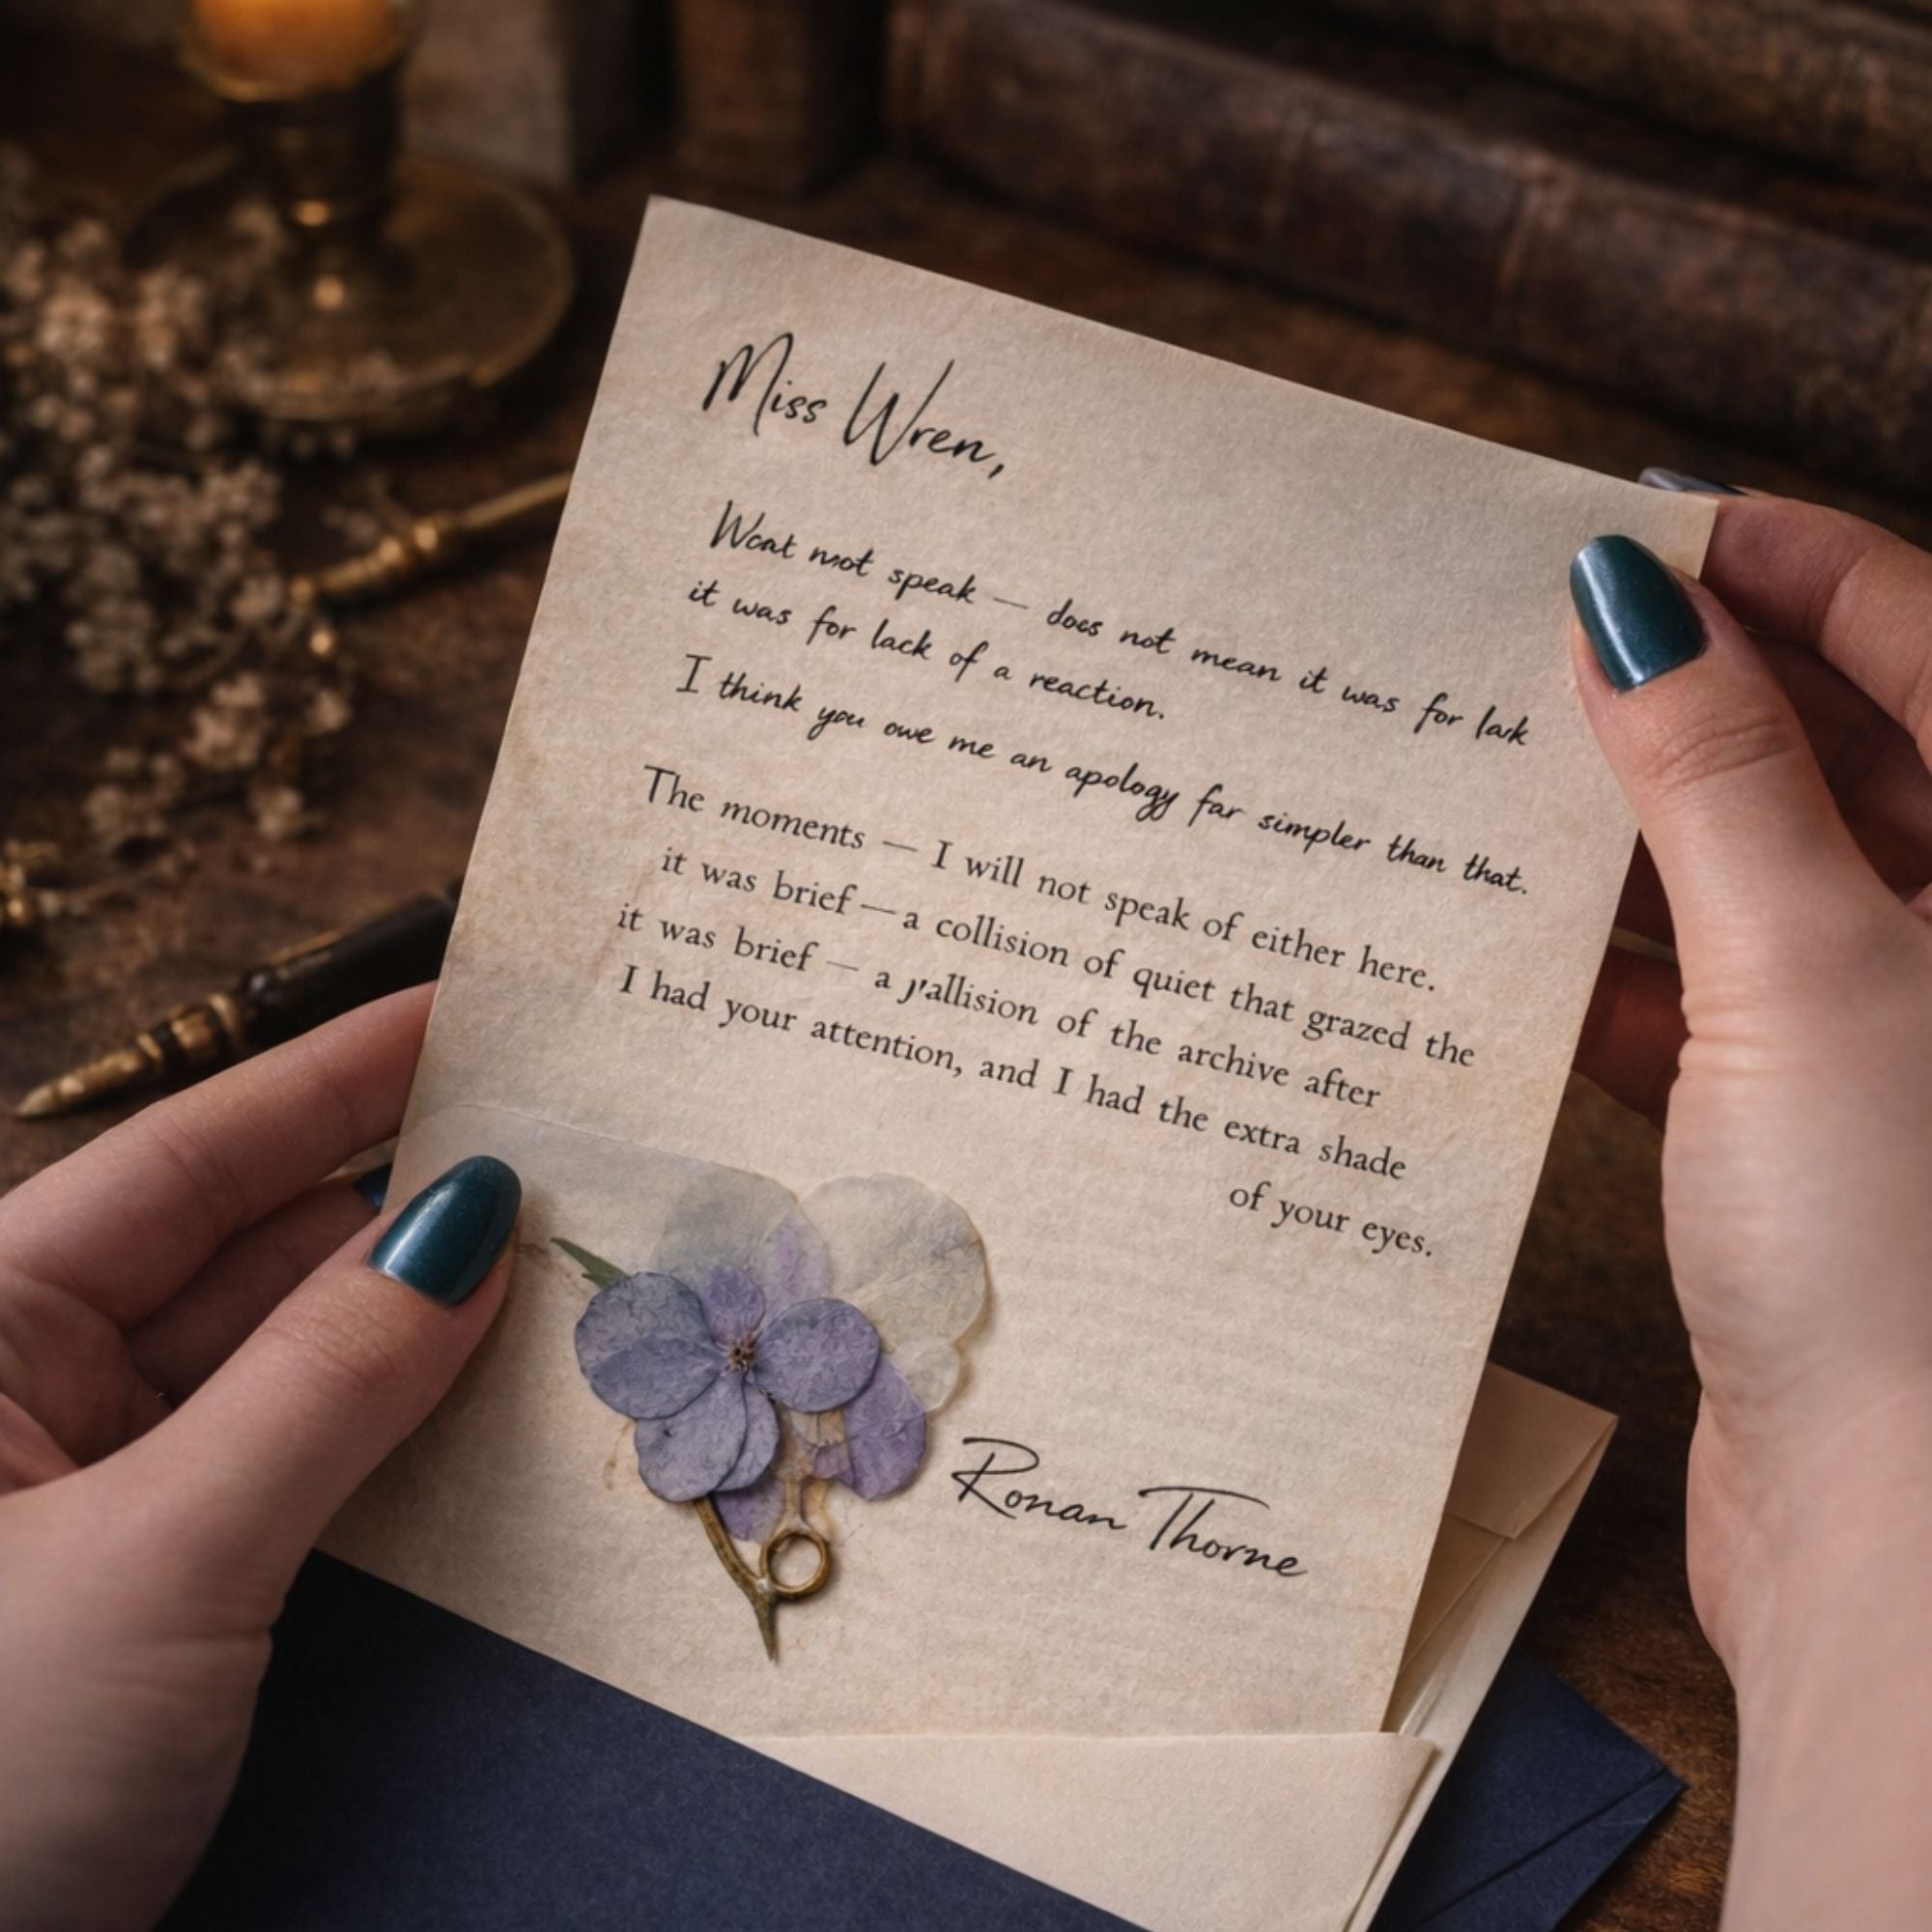 Miss Wren,
Wcat mot speak — does not mean it was for lack
it was for lack of a reaction.
I think you owe me an apology far simpler than that.
The moments — I will not speak of either here.
it was brief — a collision of quiet that grazed the
it was brief — a allision of the archive after
I had your attention, and I had the extra shade
of your eyes.
Ronan Thorne